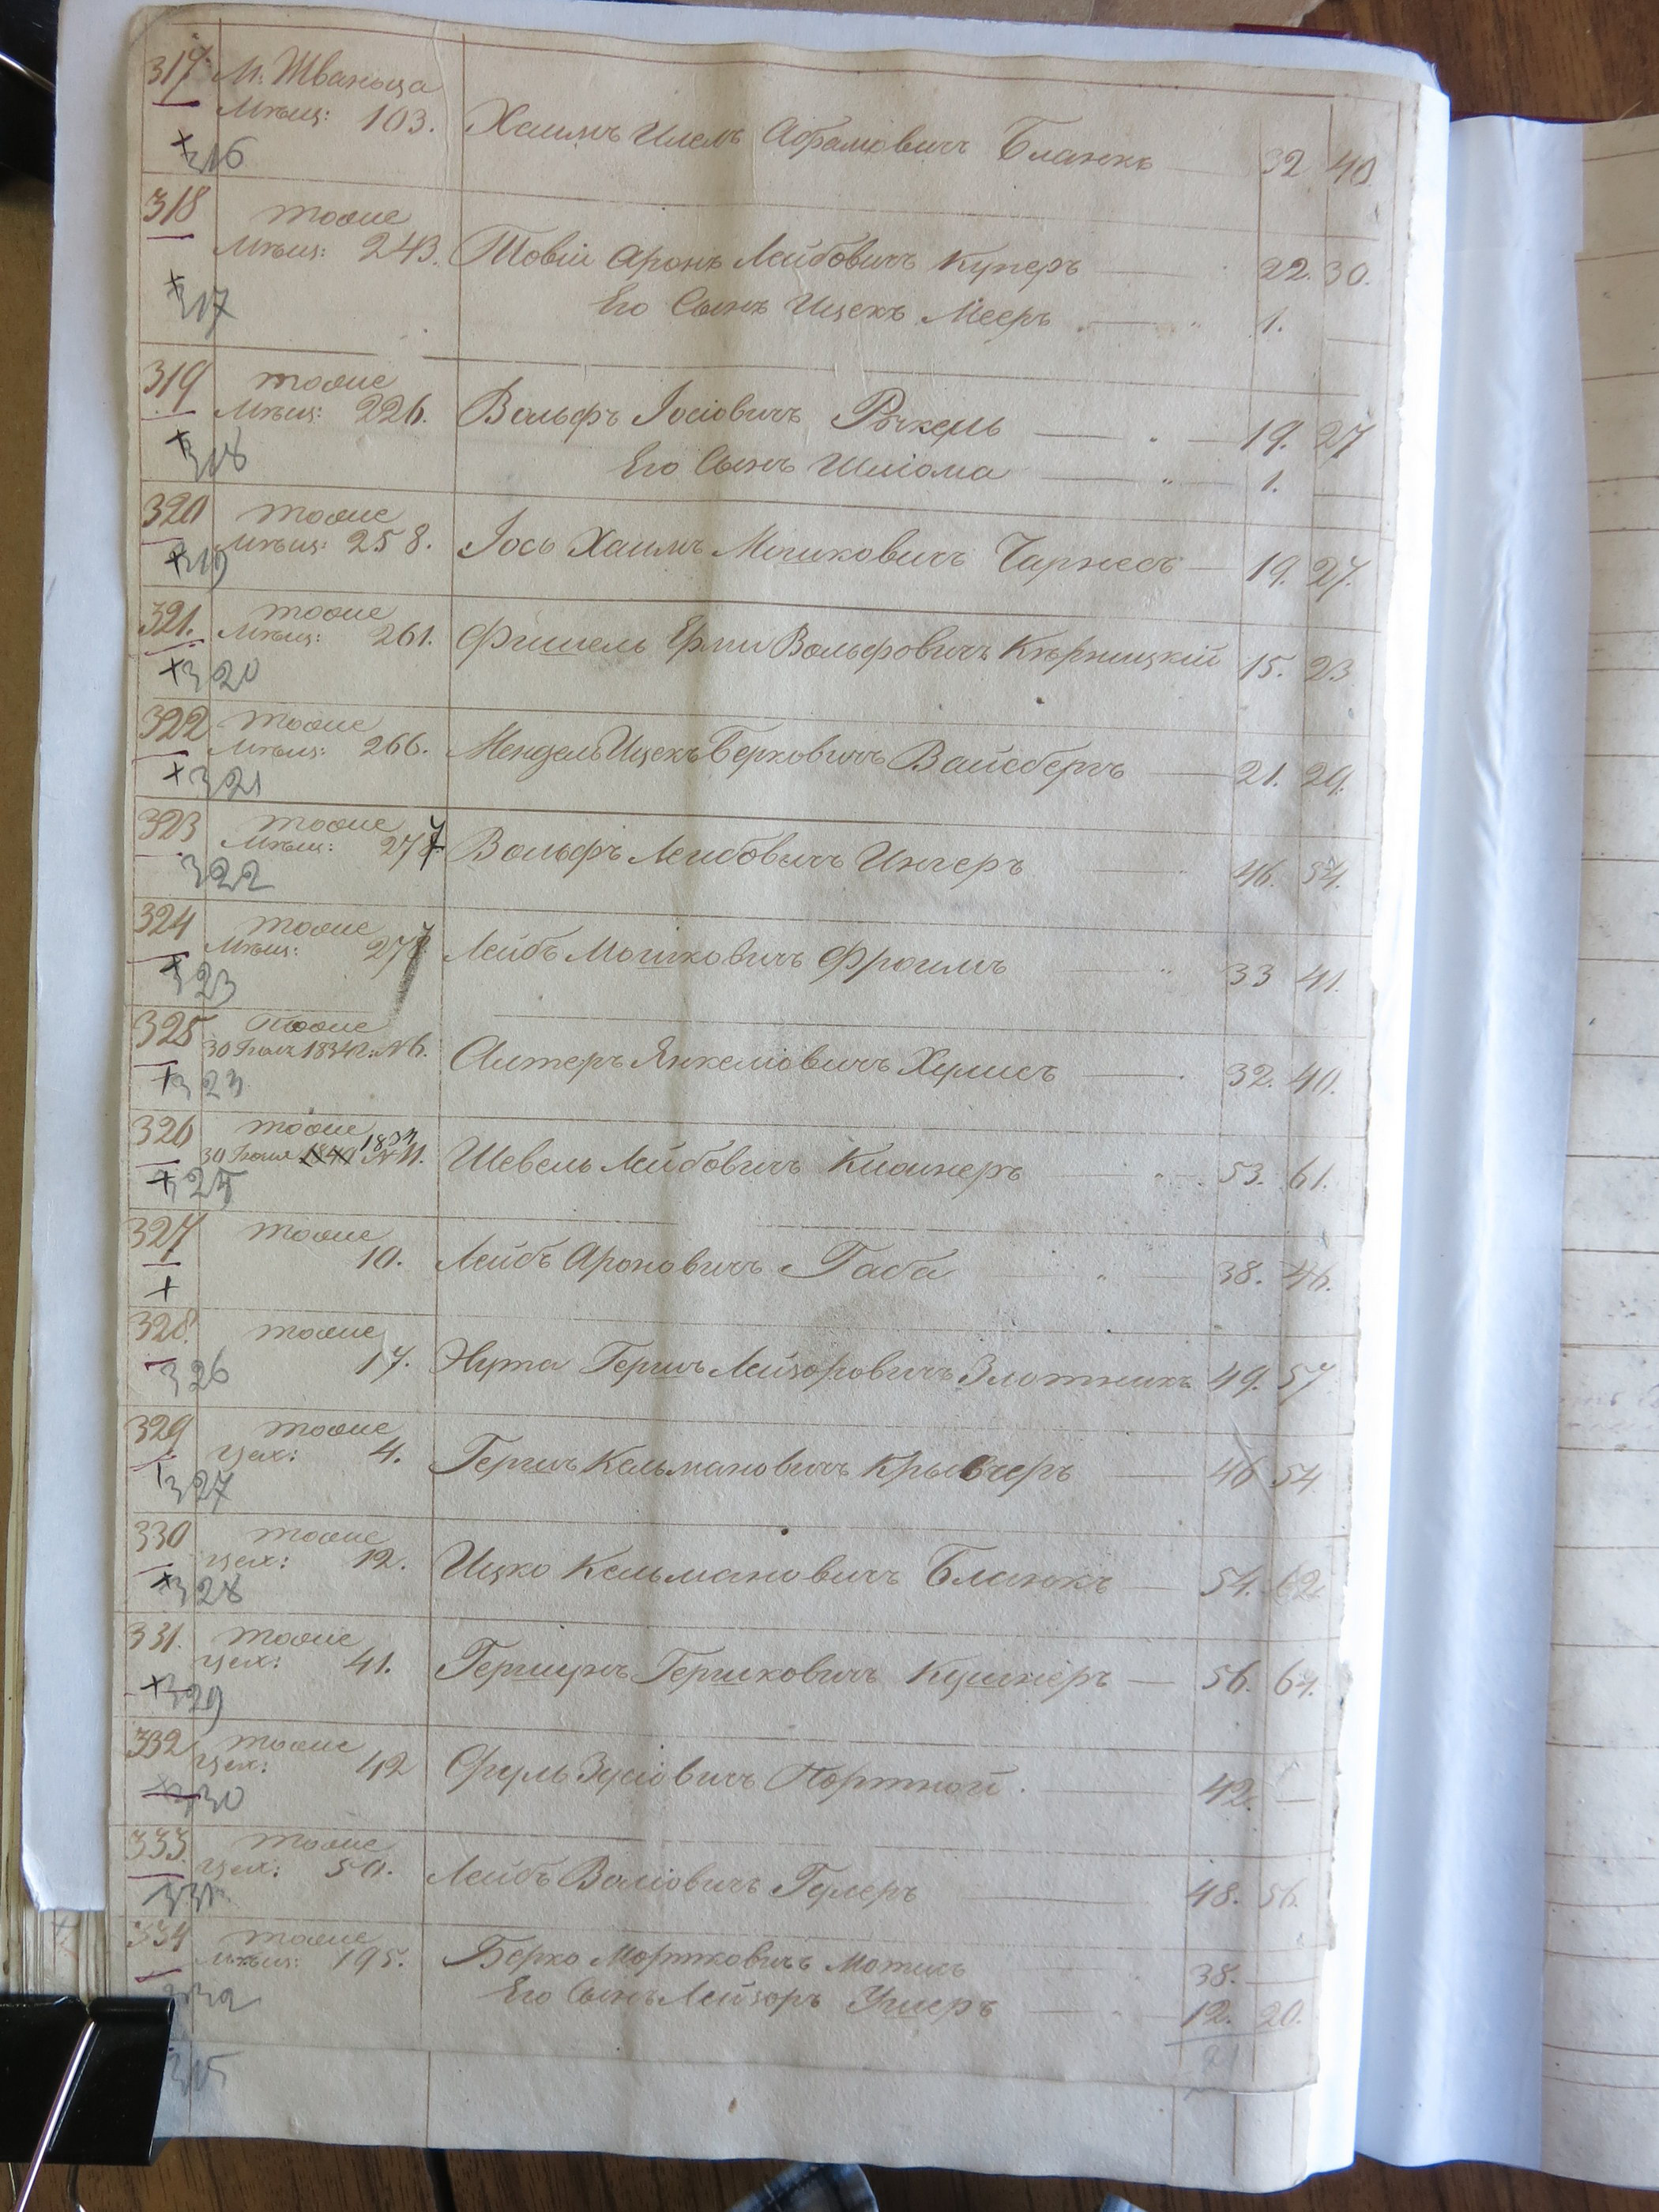 317 М. Жванца
Мѣщ: 103. Хаимъ Илемъ Абрамовичъ Бланкъ 32 40
316
318 тоже
Мѣщ: 243. Товій Аронъ Лейбовичъ Куперъ 22. 30.
Его Сынъ Ицекъ Мееръ 1.
317
319 тоже
Мѣщ: 226. Вольфъ Іосіовичъ 19. 27
318 Его Сынъ Шліома 1.
320 тоже
Мѣщ: 258. Іось Хаимъ Мошковичъ Чарнесъ 19. 27.
319
321. тоже
Мѣщ: 261. Фишель Вольфовичъ 15. 23
320
322 тоже
Мѣщ: 266. Мендель Ицекъ Берковичъ Вайсбергъ 21. 29.
321
323 тоже
Мѣщ: 277 Вольфъ Лейбовичъ Ингеръ 46. 54.
322
324 тоже
Мѣщ: 277 Лейбъ Мошковичъ Фроимъ 33 41.
323
325 тоже
30 1834 г: № 6. Алтеръ Янкеліовичъ 32. 40.
323
326 тоже
30 № 11. Шевель Лейбовичъ 53. 61.
325
327 тоже
10. Лейбъ Ароновичъ Габа 38. 46.
328. тоже
17. Нута Гершъ Лейзоровичъ Злотникъ 49. 57
326
329 тоже
Цех: 4. Гершъ Кельмановичъ 46 54
327
330 тоже
Цех: 12. Ицко Кельмановичъ Бланкъ 54. 62
328
331. тоже
Цех: 41. Гершунъ Гершковичъ Кушнеръ 56. 64.
329
332 тоже
Цех: 42 Фроль Зусіовичъ Портной. 42. —
330
333. тоже
Цех: 50. Лейбъ Воліовичъ 48. 56.
331
334 тоже
Мѣщ: 195. Берко Мортковичъ 38. —
332 Его Сынъ Лейзоръ Ушеръ 12. 20.
21
315